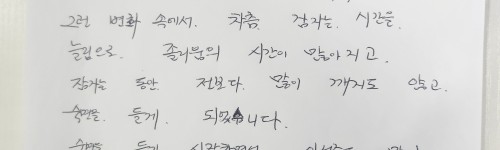 그런 변화 속에서. 차츰. 잠자는. 시간을.
늘림으로. 졸리움의 시간이 많아지고.
잠자는 동안. 전보다. 많이 깨지도 않고.
숙면을. 들게. 되었습니다.
숙면을 들게